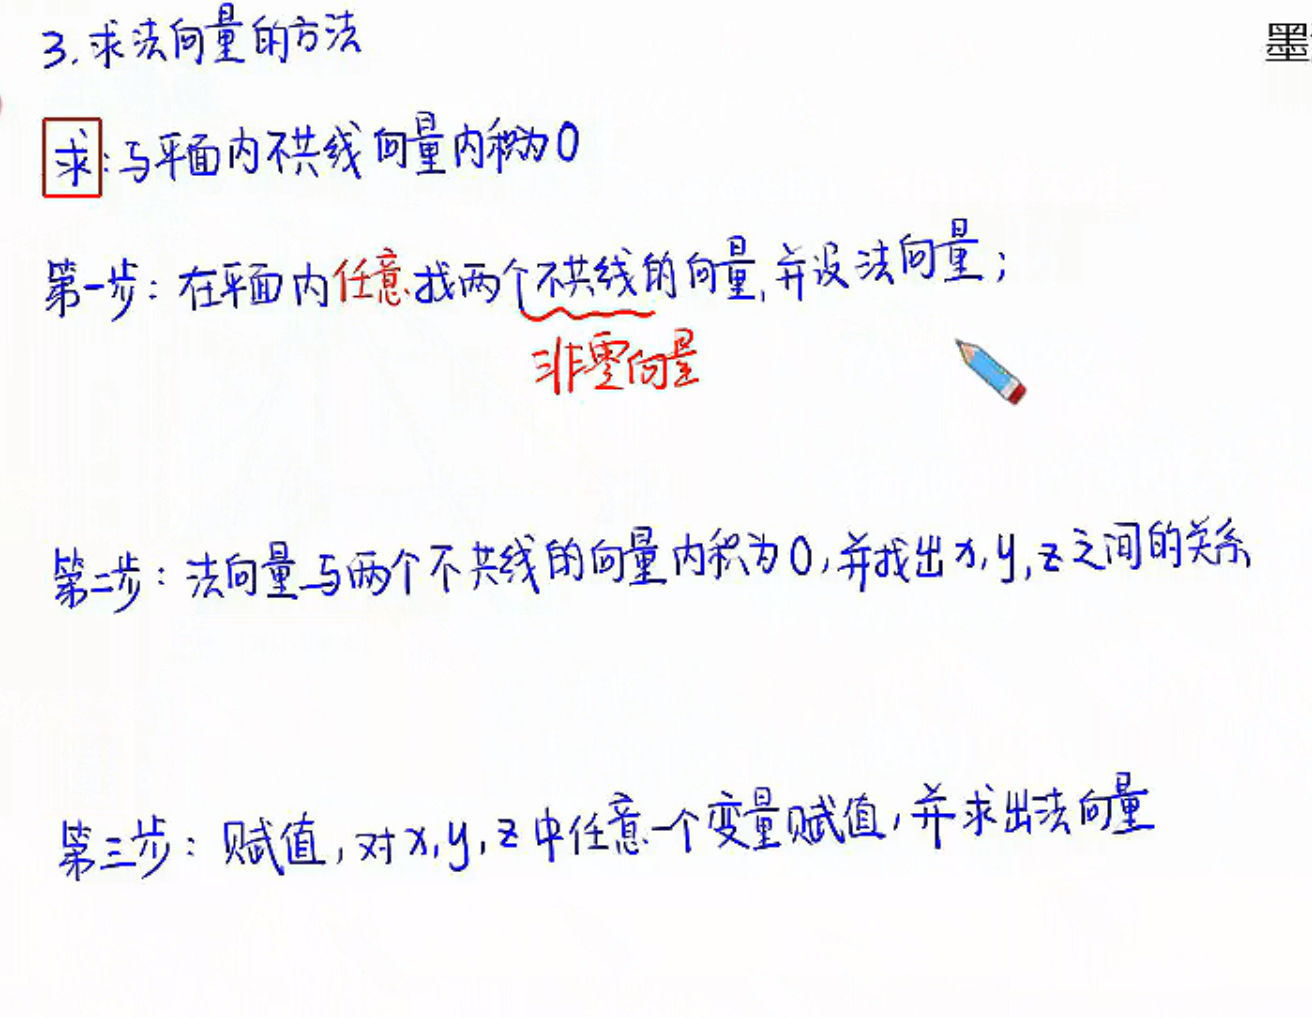 3.求法向量的方法
墨
求:与平面内不共线向量内积为0
第一步:在平面内任意找两个不共线的向量,并设法向量;
非零向量
第二步:法向量与两个不共线的向量内积为0,并找出x,y,z之间的关系
第三步:赋值,对x,y,z中任意一个变量赋值,并求出法向量